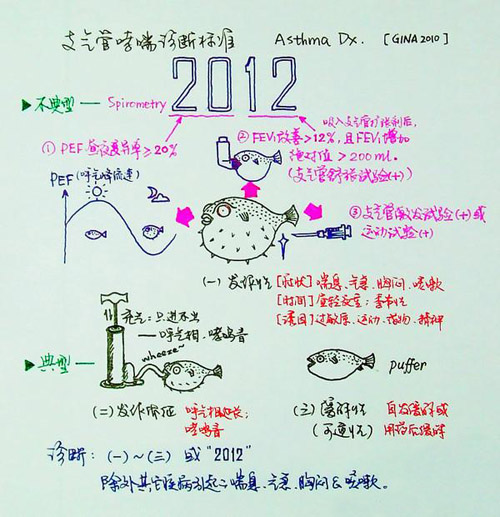 支气管哮喘诊断标准 Asthma Dx. [GINA 2010]
2012
▶不典型 — Spirometry
吸入支气管扩张剂后,
① PEF 昼夜变异率 ≥ 20%
② FEV₁改善>12%, 且FEV₁增加
绝对值 > 200 ml.
(支气管舒张试验(+))
PEF (呼气峰流速)
③ 支气管激发试验(+) 或
运动试验(+)
(一) 发作性 [症状] 喘息、气急、胸闷、咳嗽
[时间] 夜轻交重; 季节性
[诱因] 过敏原、运动、药物、精神
充气: 只进不出
— 呼气相, 哮鸣音
wheeze~
▶典型 —
puffer
(二) 发作体征 呼气相延长;
哮鸣音
(三) 缓解性 自发缓解或
(可逆性) 用药后缓解
诊断: (一)~(三) 或 "2012"
除外其它疾病引起之喘息、气急、胸闷 & 咳嗽。